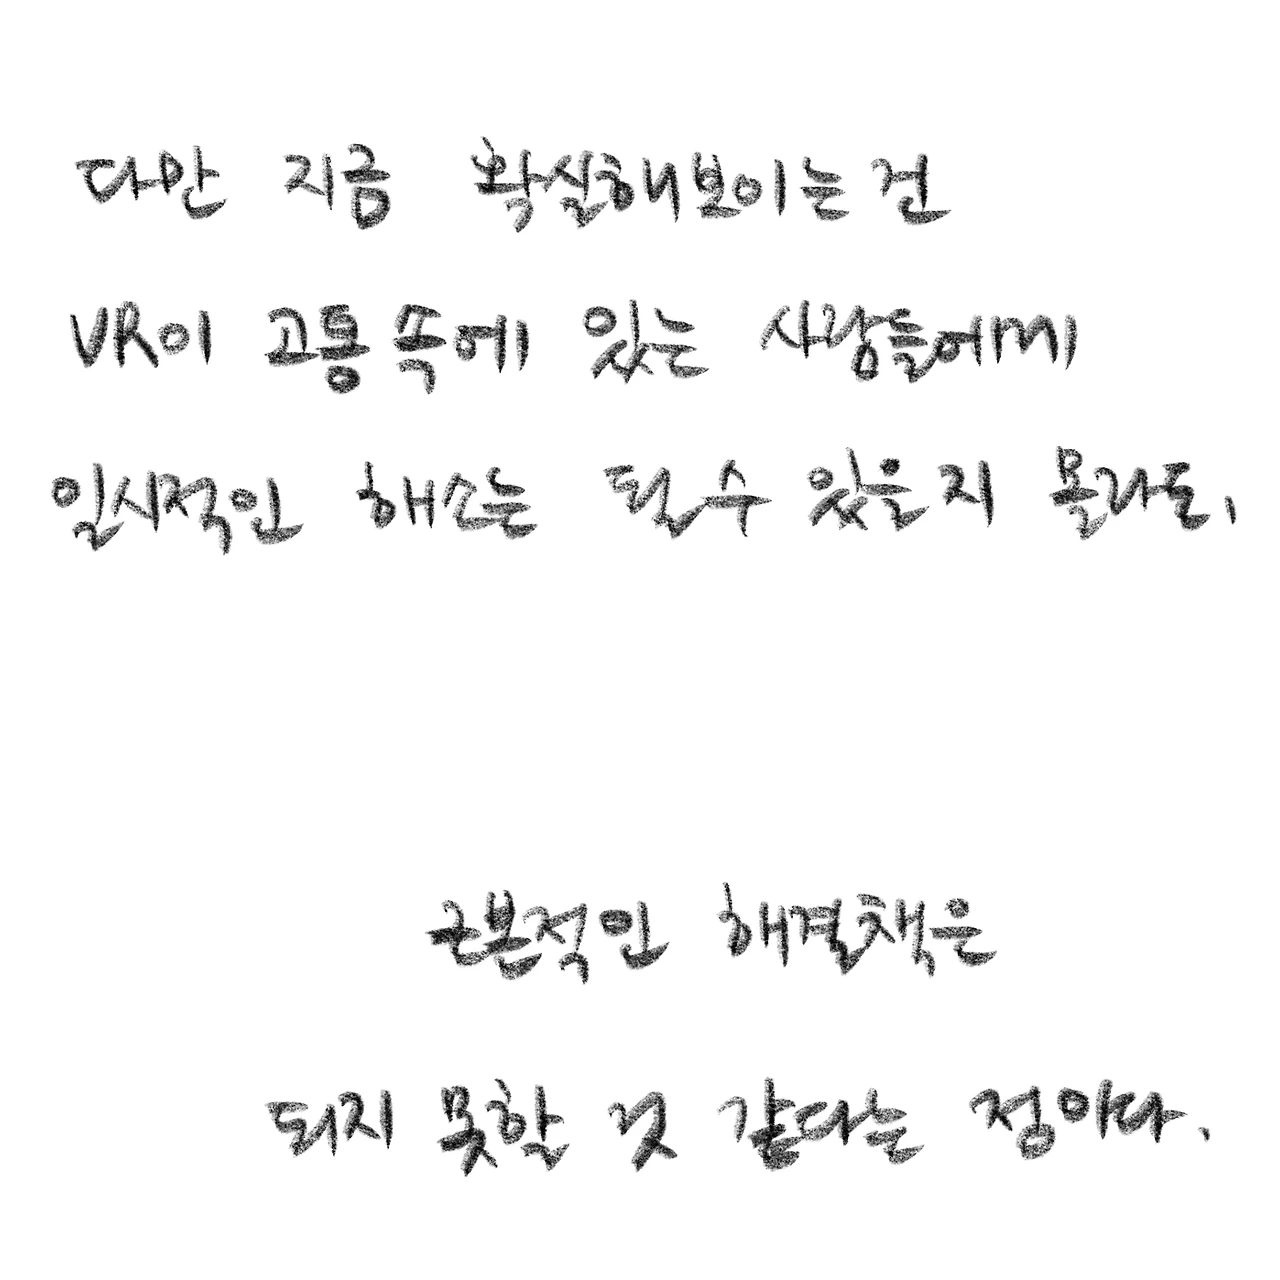 다만 지금 확실해보이는 건
VR이 고통 속에 있는 사람들에게
일시적인 해소는 될 수 있을지 몰라도,
근본적인 해결책은
되지 못할 것 같다는 점이다.